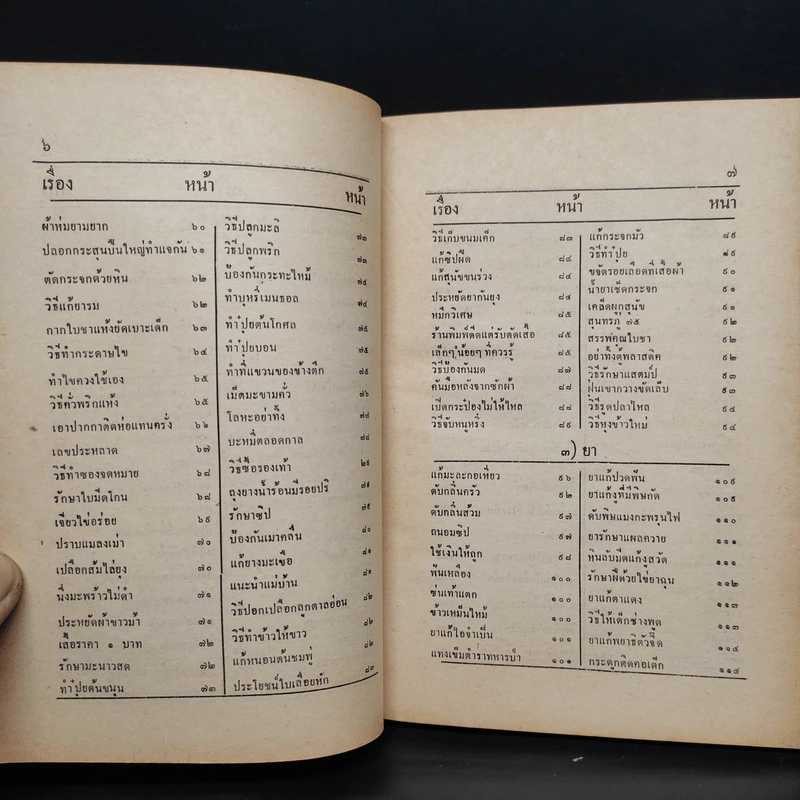 ๖
เรื่อง หน้า
ผ้าห่มยามยาก ๖๐
ปลอกกระสุนปืนใหญ่ทำแจกัน ๖๑
ตัดกระจกด้วยหิน ๖๒
วิธีแก้ยารม ๖๒
กากใบชาแห้งยัดเบาะเด็ก ๖๓
วิธีทำกระดาษไข ๖๔
ทำไขควงใช้เอง ๖๕
วิธีคั่วพริกแห้ง ๖๕
เอาปากกาติดห่อแทนครั้ง ๖๖
เลขประหลาด ๖๗
วิธีทำซองจดหมาย ๖๘
รักษาใบมีดโกน ๖๘
เจียวไข่อร่อย ๖๙
ปราบแมลงเม่า ๗๐
เปลือกส้มไล่ยุง ๗๐
นึ่งมะพร้าวไม่ดำ ๗๑
ประหยัดผ้าขาวม้า ๗๑
เสื้อราคา ๑ บาท ๗๒
รักษามะนาวสด ๗๒
ทำปุ๋ยต้นขนุน ๗๓
หน้า
วิธีปลูกมะลิ ๗๓
วิธีปลูกพริก ๗๓
ป้องกันกระทะไหม้ ๗๔
ทำบุหรี่เมนธอล ๗๔
ทำปุ๋ยต้นโกศล ๗๕
ทำปุ๋ยบอน ๗๕
ทำที่แขวนของข้างตึก ๗๕
เม็ดมะขามคั่ว ๗๖
โลหะอย่าทิ้ง ๗๗
บะหมี่ตลอดกาล ๗๘
วิธีซื้อรองเท้า
ถุงยางน้ำร้อนมีรอยปริ ๗๙
รักษาซิป ๗๙
ป้องกันเมาคลื่น ๘๐
แก้ยางมะเขือ ๘๑
แนะนำแม่บ้าน ๘๑
วิธีปอกเปลือกลูกตาลอ่อน ๘๒
วิธีทำข้าวให้ขาว ๘๒
แก้หนอนต้นชมพู่ ๘๒
ประโยชน์ใบเลี่อยหัก ๘๓
๗
เรื่อง หน้า
วิธีเก็บขนมเค็ก ๘๓
แก้ซิปฝืด ๘๔
แก้สุนัขขนร่วง ๘๔
ประหยัดยากันยุง ๘๔
หมึกวิเศษ ๘๕
ร้านพิมพ์ดีดแต่รับตัดเสื้อ ๘๕
เล็กๆ น้อยๆ ที่ควรรู้ ๘๕
วิธีป้องกันมด ๘๗
คันมือหลังจากซักผ้า ๘๘
เปิดกระป๋องไม่ให้ไหล ๘๘
วิธีจับหนูหริ่ง ๘๙
หน้า
แก้กระจกมัว ๘๙
วิธีทำปุ๋ย ๘๙
ขจัดรอยเลือดที่เสื้อผ้า ๙๐
น้ำยาเช็ดกระจก ๙๑
เคล็ดผูกสุนัข ๙๑
สุนทรภู่ ๗๕ ๙๒
สรรพ์คุณใบชา ๙๒
อย่าทิ้งตุ้พลาสติค ๙๒
วิธีรักษาแสตมป์ ๙๓
ฝุ่นเขากวางขัดเล็บ ๙๓
วิธีรูดปลาไหล ๙๔
วิธีหุงข้าวใหม่ ๙๔
๓) ยา
แก้มะละกอเหี่ยว ๙๖
ดับกลิ่นครัว ๙๒
ดับกลิ่นส้วม ๙๗
ถนอมซิป ๙๗
ใช้เงินให้ถูก ๙๘
ฟันเหลือง ๑๐๐
ซ่นเท้าแตก ๑๐๐
ข้าวเหม็นไหม้ ๑๐๐
ยาแก้ไอจำเป็น ๑๐๑
แทงเข็มตำราทหารป่า ๑๐๑
ยาแก้ปวดฟัน ๑๐๙
ยาแก้งูที่มีพิษกัด ๑๐๙
ดับพิษแมงกะพรุนไฟ ๑๑๐
ยารักษาแผลควาย ๑๑๑
หินลับมีดแก้งูสวัด ๑๑๑
รักษาฝีด้วยไข่ยาฉุน ๑๑๒
ยาแก้ตาแดง ๑๑๓
วิธีให้เด็กช่างพูด ๑๑๓
ยาแก้พยาธิตัวจี๊ด ๑๑๔
กระดูกติดคอเด็ก ๑๑๔